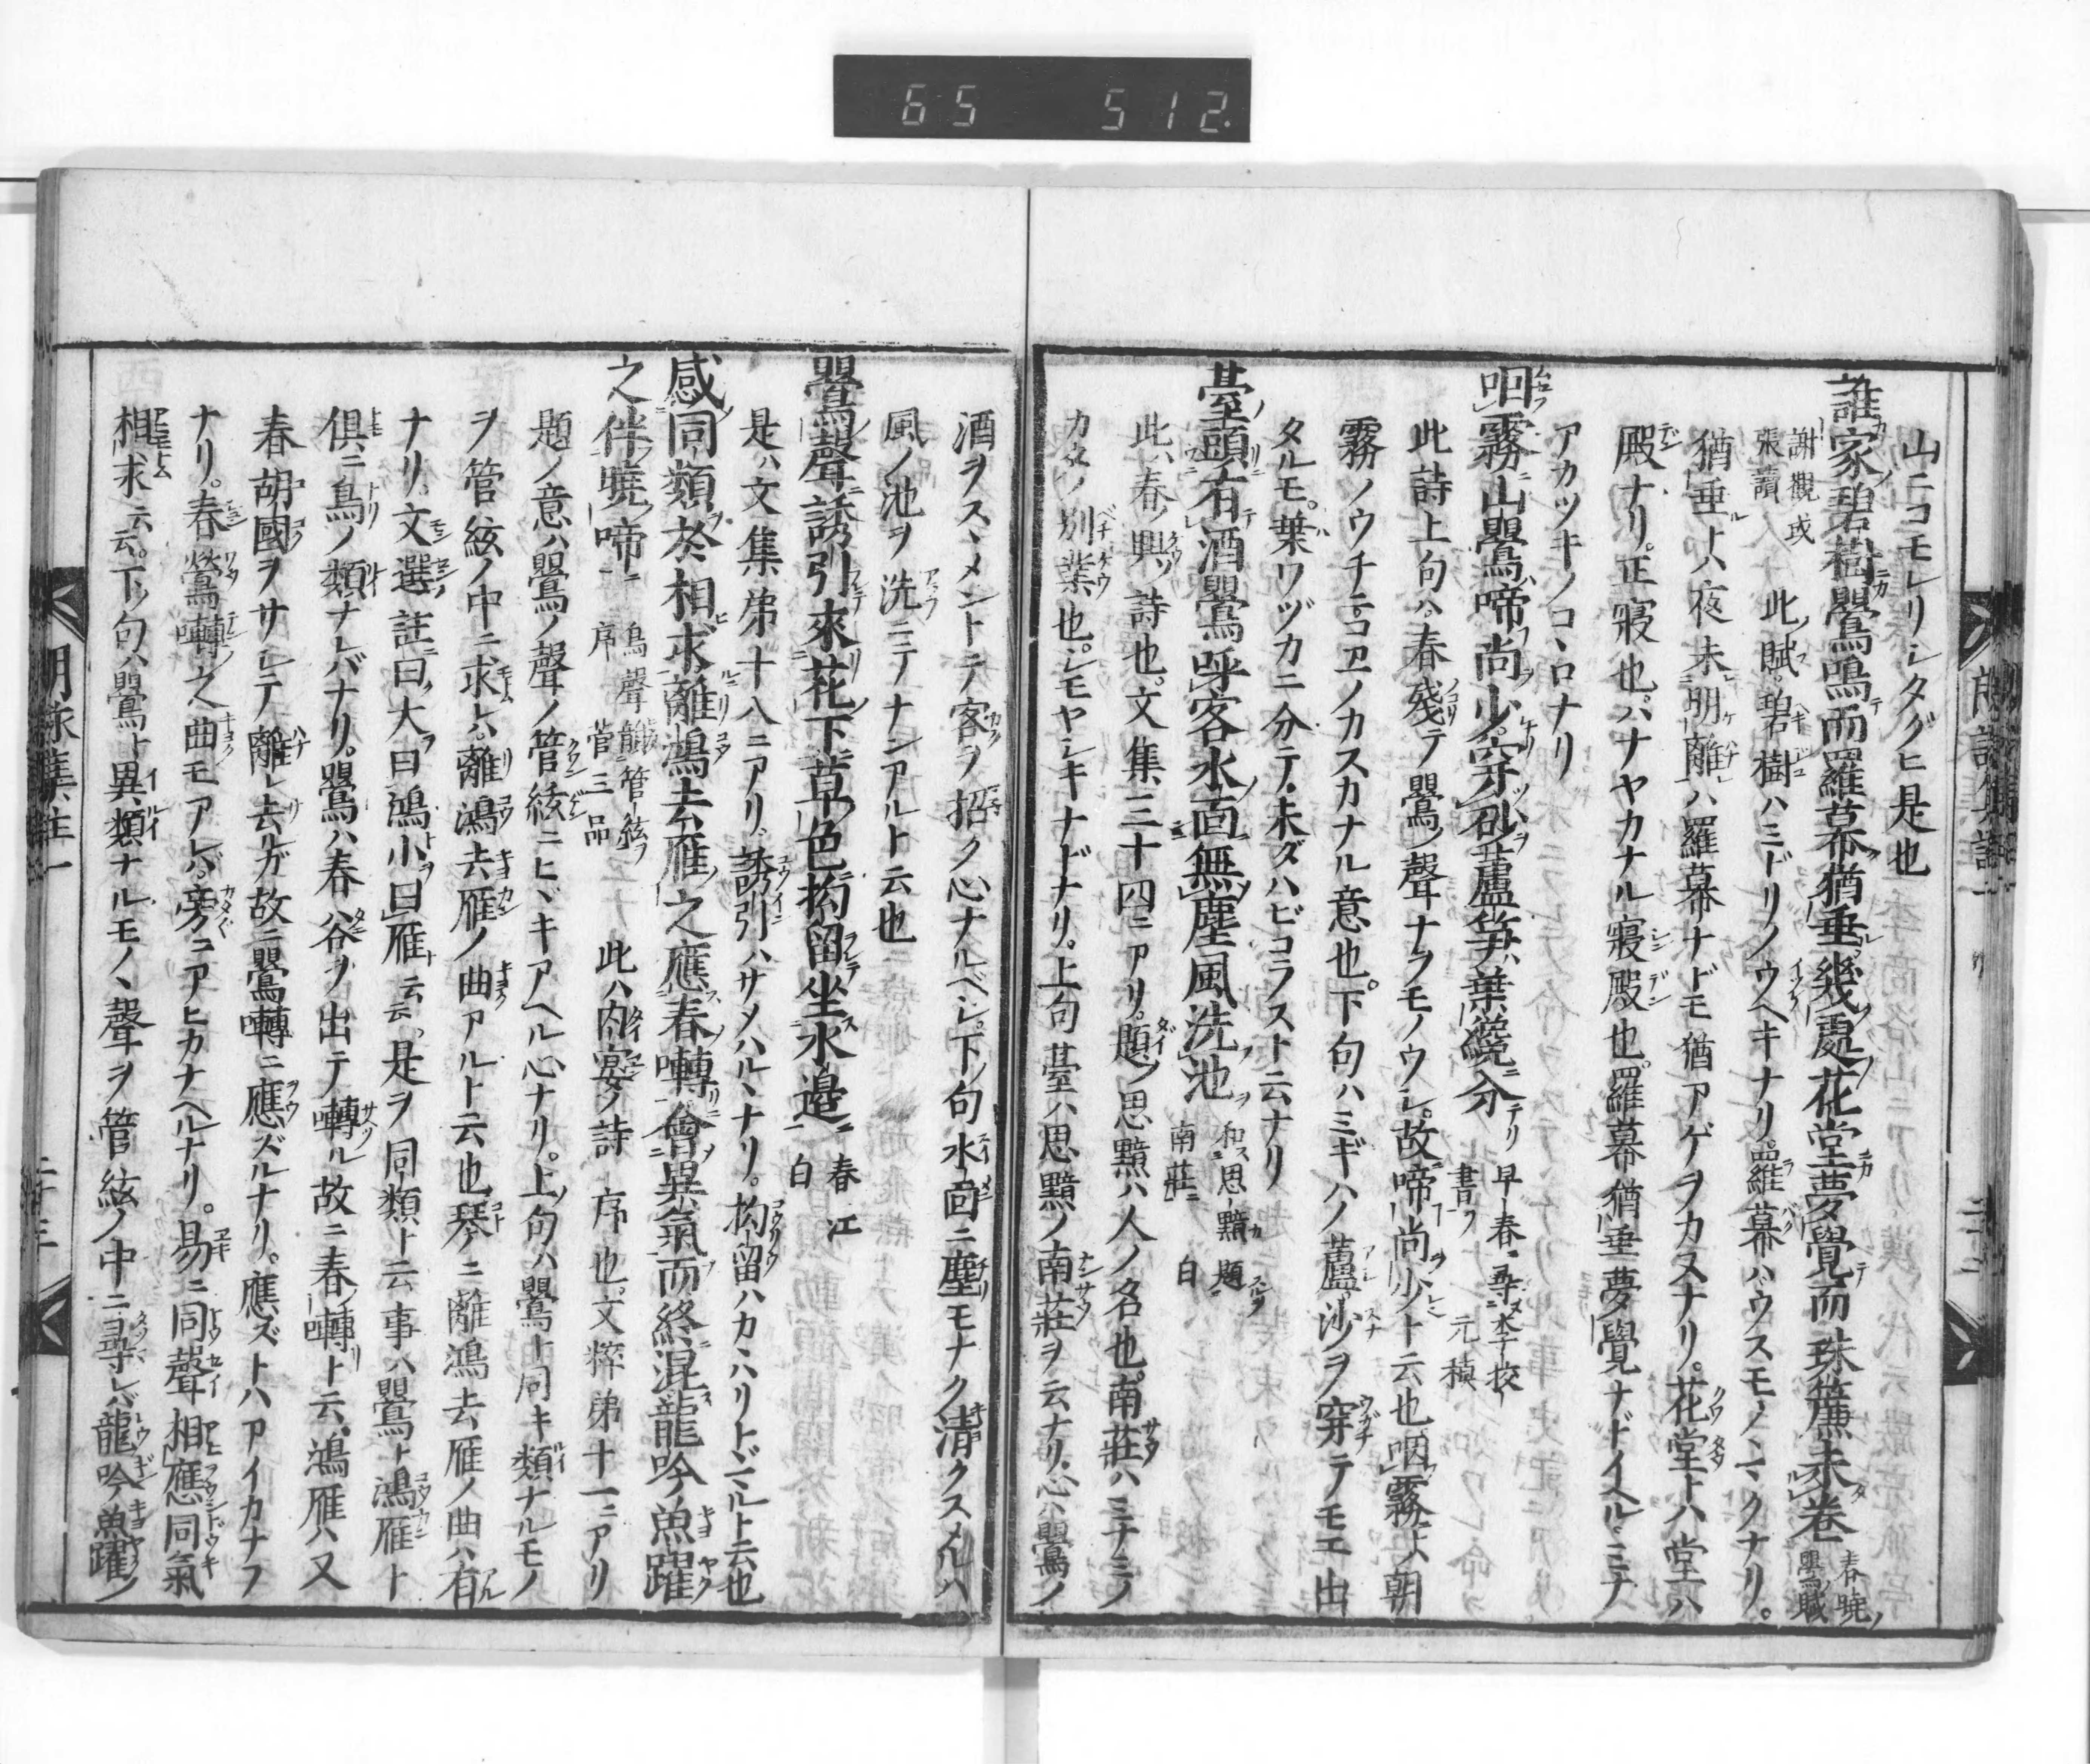 65 512
山ニコモレリシタグヒ是也
誰家碧樹鸎鳴而羅幕猶垂幾處花堂夢覺而珠簾未卷 春曉鸎賦
謝觀或張讀 此賦碧樹ハミドリノウヘキナリ羅幕ハウスモノヽマクナリ。
猶垂トハ夜未明離ハ羅幕ナドモ猶アゲヲカヌナリ。花堂トハ堂ハ
殿ナリ。正寢也。ハナヤカナル寢殿也。羅幕猶垂夢覺ナドイヘルミナ
アカツキノコヽロナリ
咽霧山鸎啼尚少穿砂蘆笋葉纔分 早春尋李校書 元稹
此詩上句ハ春殘テ鸎ノ聲ナラモノウシ。故啼尚少ト云也咽霧トハ朝
霧ノウチニコヱノカスカナル意也。下句ハミギハノ蘆沙ヲ穿テモエ出
タルモ。葉ワヅカニ分テ未ダハビコラスト云ナリ
臺頭有酒鸎呼客水面無塵風洗池 和思黯題南莊 白
此ハ春ノ興ノ詩也。文集三十四ニアリ。題ノ思黯ハ人ノ名也。南莊ハミナミノ
カタノ別業也。シモヤシキナドナリ。上句臺ハ思黯ノ南莊ヲ云ナリ。心ハ鸎ノ
朗詠集註一
二十二
酒ヲスヽメントテ客ヲ招ク心ナルベシ。下ノ句水面ニ塵モナク清クスメルハ
風ノ池ヲ洗ニテナンアルト云也
鸎聲誘引來花下草色拘留坐水邊 春江 白
是ハ文集第十八ニアリ。誘引ハサソハルヽナリ。拘留ハカヽハリトヾマルト云也
感同類於相求離鴻去雁之應春囀會異氣而終混龍吟魚躍
之伴曉啼 鳥聲韻管絃序 菅三品 此ハ内宴ノ詩序也。文粹第十一ニアリ
題ノ意ハ鸎ノ聲ノ管絃ニヒヾキアヘル心ナリ。上ノ句ハ鸎ト同キ類ナルモノ
ヲ管絃ノ中ニ求レハ離鴻去雁ノ曲アルト云也琴ニ離鴻去雁ノ曲ハ有
ナリ。文選註曰大曰鴻小曰雁云云。是ヲ同類ト云事ハ鸎ト鴻雁ト
倶ニ鳥ノ類ナレバナリ。鸎ハ春谷ヲ出テ囀ル故ニ春囀ト云。鴻雁ハ又
春胡國ヲサシテ離レ去ルガ故ニ鸎囀ニ應ズルナリ。應ズトハアイカナフ
ナリ。春鶯囀之曲モアレバ。旁ニアヒカナヘルナリ。易ニ同聲相應同氣
相求云云。下ノ句ハ鸎ト異類ナルモノヽ聲ヲ管絃ノ中ニ尋レバ龍吟魚躍ノ
朗詠集註一
二十三